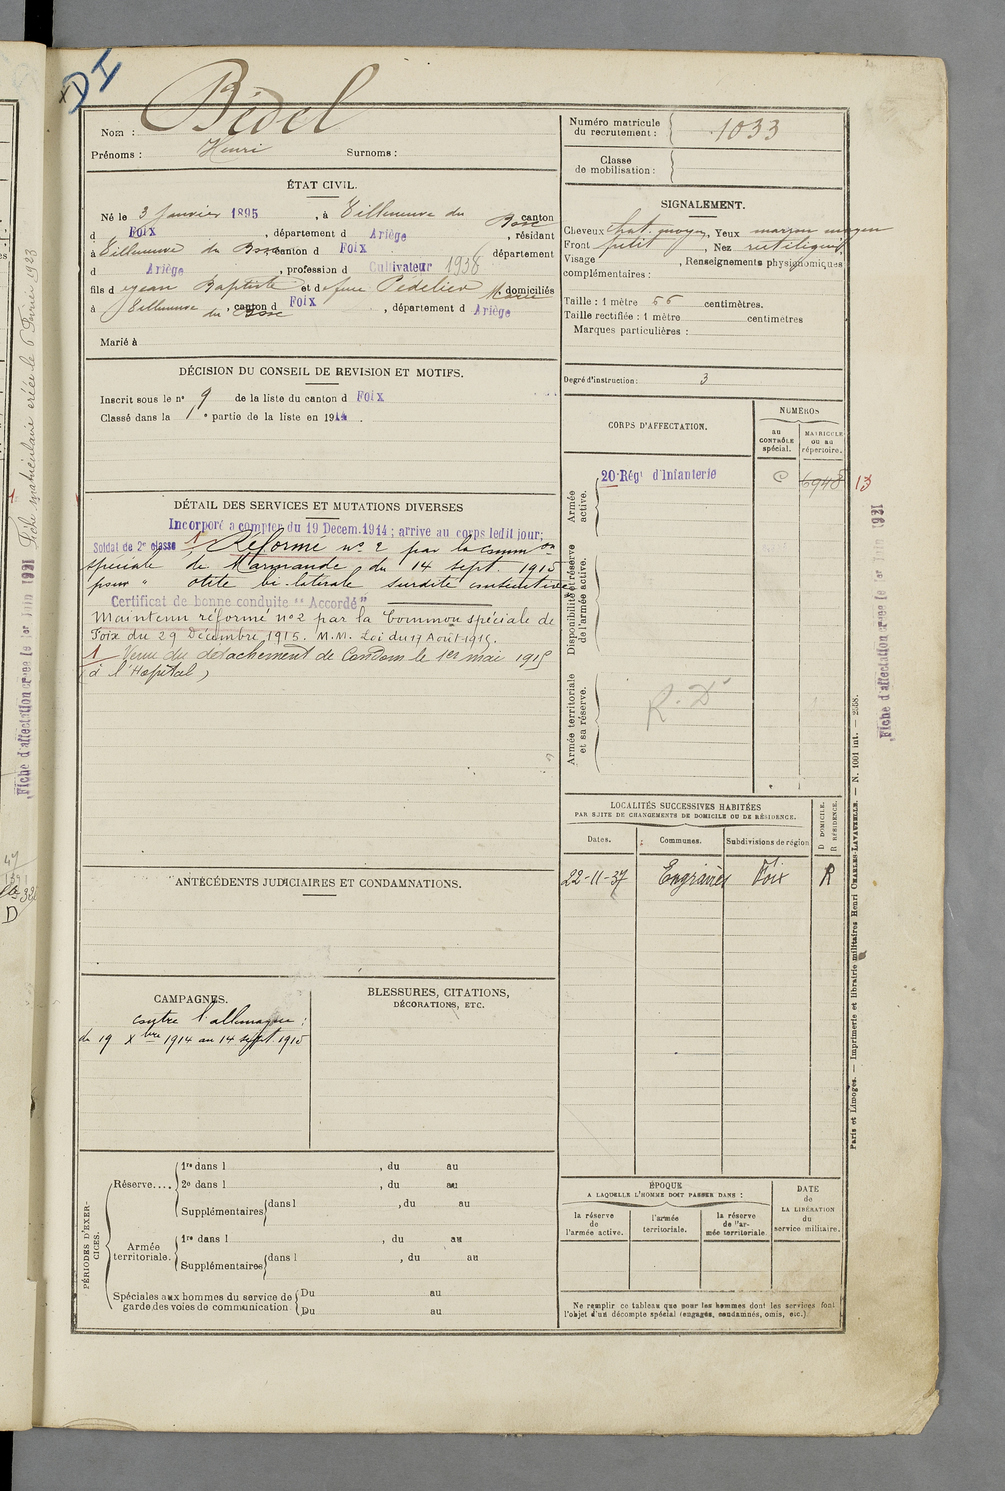 DI
Bedel
Nom :
Prénoms : Henri Surnoms :
Numéro matricule du recrutement : 1033
Classe de mobilisation :
ÉTAT CIVIL.
Né le 3 Janvier 1895, à Villeneuve du Bosc canton
d Foix, département d Ariège, résidant
à Villeneuve du Bosc canton d Foix département
d Ariège, profession d Cultivateur 1938
fils d e Jean Baptiste et d e feue Pedelier Marie domiciliés
à Villeneuve du Bosc, canton d Foix, département d Ariège
Marié à
SIGNALEMENT.
Cheveux chat. moyen, Yeux marron moyen
Front petit, Nez rectiligne
Visage , Renseignements physionomiques
complémentaires :
Taille : 1 mètre 66 centimètres.
Taille rectifiée : 1 mètre centimètres
Marques particulières :
Degré d'instruction : 3
DÉCISION DU CONSEIL DE REVISION ET MOTIFS.
Inscrit sous le n° 9 de la liste du canton d Foix
Classé dans la 1° partie de la liste en 1914.
DÉTAIL DES SERVICES ET MUTATIONS DIVERSES
Incorporé a compter du 19 Decem. 1914 ; arrive au corps ledit jour ;
Soldat de 2e classe 1 Réformé n° 2 par la Comm on
spéciale de Marmande du 14 sept. 1915
pour " otite bi-latérale surdité consécutive
Certificat de bonne conduite "Accordé"
Maintenu réformé n°2 par la Common spéciale de
Foix du 29 Décembre 1915. M.M. Loi du 17 Août 1915.
1 Venu du détachement de Condom le 1er mai 1915
(à l'Hopital)
CORPS D'AFFECTATION.
NUMÉROS
au CONTRÔLE spécial.
MATRICULE ou au répertoire.
Armée active.
20 Régt d'Infanterie
6948 13
Disponibilité et réserve de l'armée active.
Armée territoriale et sa réserve.
R. D
LOCALITÉS SUCCESSIVES HABITÉES
PAR SUITE DE CHANGEMENTS DE DOMICILE OU DE RÉSIDENCE.
D DOMICILE.
R RÉSIDENCE.
Dates. Communes. Subdivisions de région
22-11-37 Engraviès Foix R
ANTÉCÉDENTS JUDICIAIRES ET CONDAMNATIONS.
CAMPAGNES.
contre l'allemagne :
du 19 Xbre 1914 au 14 sept. 1915
BLESSURES, CITATIONS,
DÉCORATIONS, ETC.
PÉRIODES D'EXERCICES.
Réserve....
1re dans l , du au
2e dans l , du au
Supplémentaires dans l , du au
Armée territoriale.
1re dans l , du au
Supplémentaires dans l , du au
Spéciales aux hommes du service de garde des voies de communication
Du au
Du au
ÉPOQUE
A LAQUELLE L'HOMME DOIT PASSER DANS :
la réserve de l'armée active.
l'armée territoriale.
la réserve de l'armée territoriale
DATE de LA LIBÉRATION du service militaire.
Ne remplir ce tableau que pour les hommes dont les services font
l'objet d'un décompte spécial (engagés, condamnés, omis, etc.).
Paris et Limoges. — Imprimerie et librairie militaires Henri CHARLES-LAVAUZELLE. — N. 1001 int. — 2558.
Fiche d'affectation créée le 1er Juin 1931
Fiche d'affectation créée le 1er Juin 1931
Fiche matriculaire créée le 6 Février 1923
D